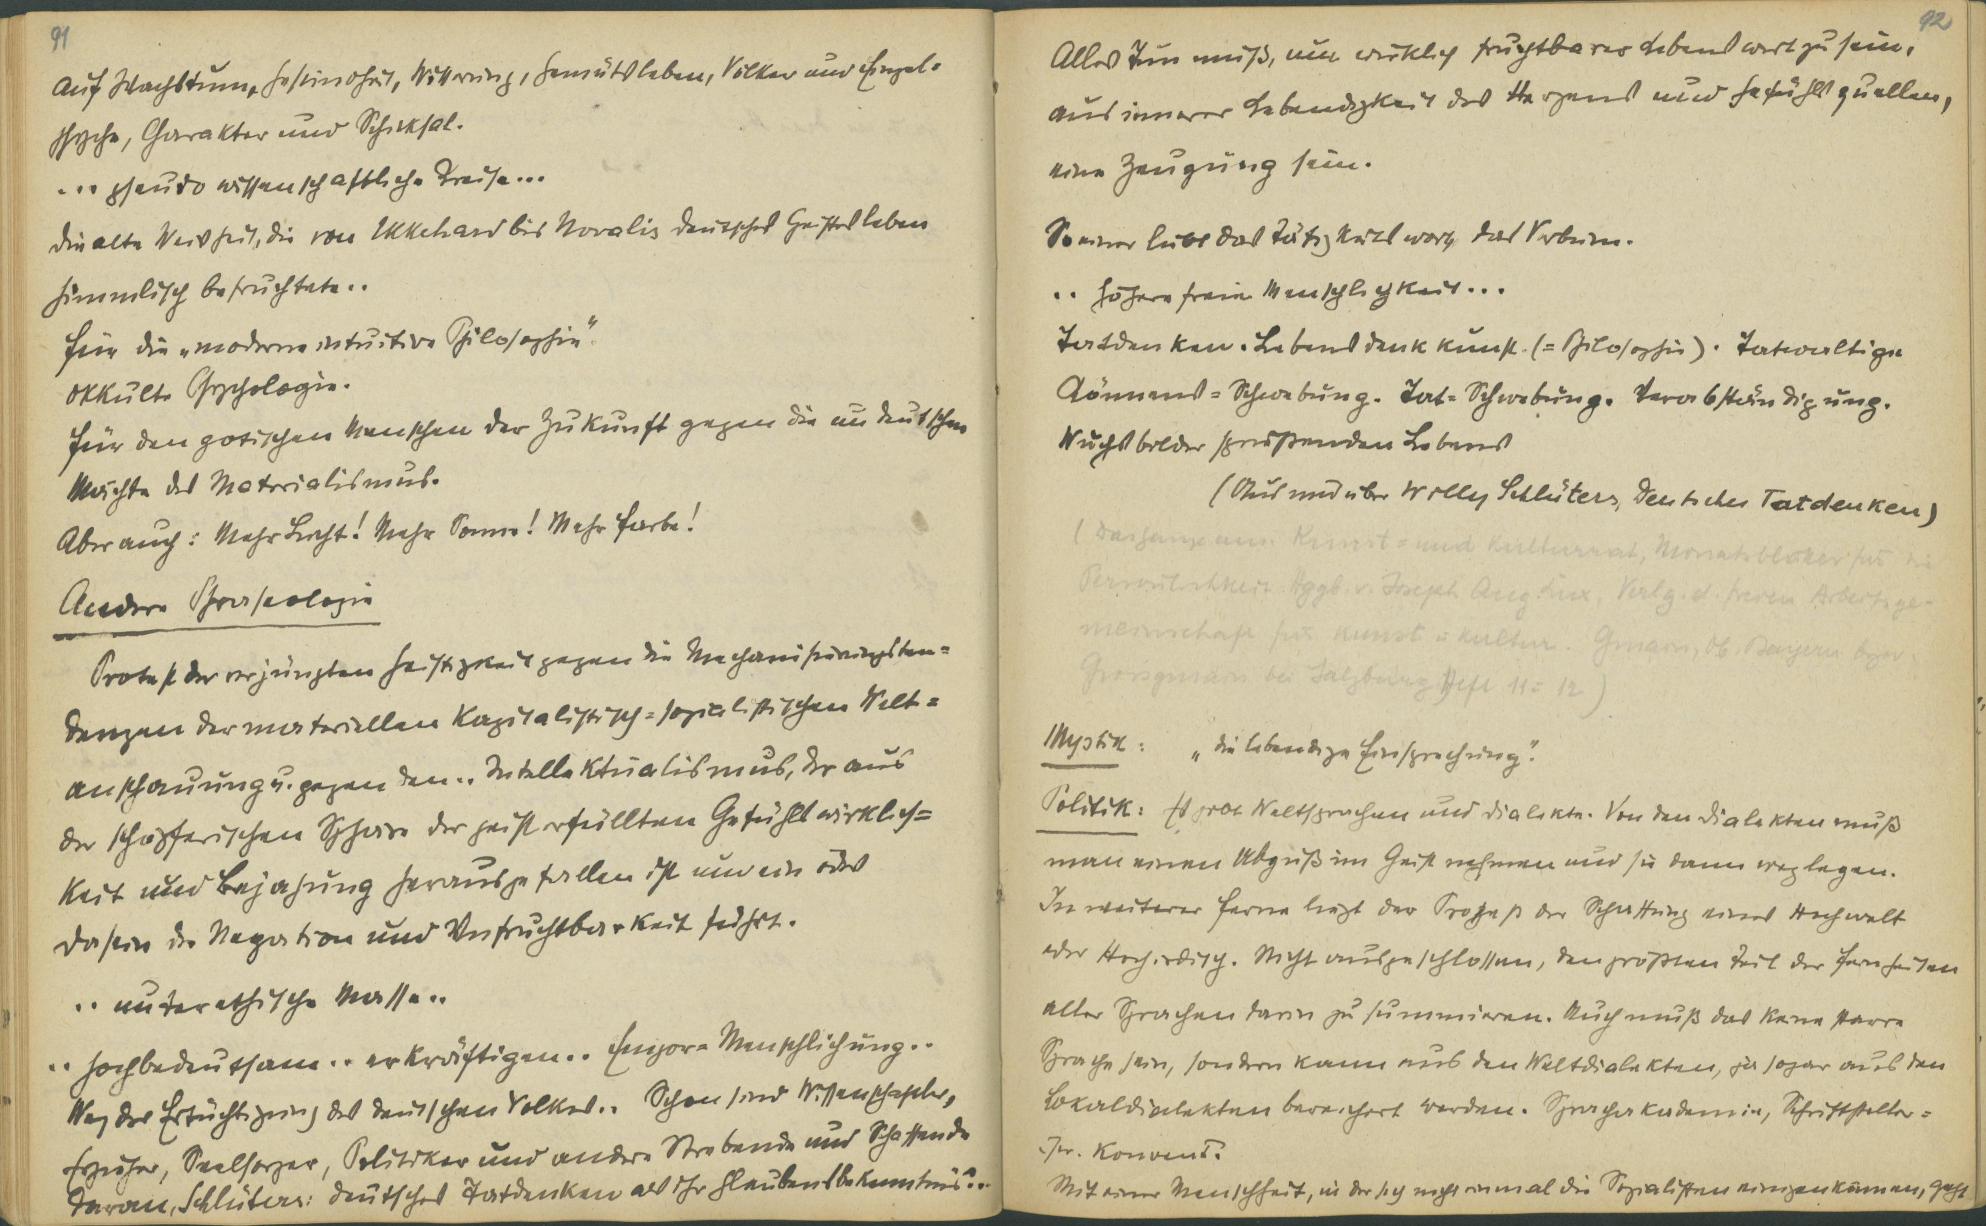 91
auf Wachstum, Gesundheit, Witterung, Gemütsleben, Völker und Einzel-
psyche, Charakter und Schicksal.
... pseudowissenschaftliche Kreise...
die alte Weisheit, die von Ekkehard bis Novalis deutsches Geistesleben
himmlisch befruchtete..
für die „moderne intuitive Philosophie“.
okkulte Psychologie.
für den gotischen Menschen der Zukunft gegen die undeutschen
Mächte des Materialismus.
Aber auch: Mehr Licht! Mehr Sonne! Mehr Farbe!
Andere Phraseologie
Protest der verjüngten Geistigkeit gegen die Mechanisierungsten=
denzen der materiellen kapitalistisch=sozialistischen Welt=
anschauung u. gegen den .. Intellektualismus, der aus
der schöpferischen Sphäre der geisterfüllten Gefühlswirklich=
keit und Bejahung herausgefallen ist und ein ödes
Dasein der Negation und Unfruchtbarkeit führt.
.. unterethische Masse..
.. hochbedeutsam .. erkräftigen .. Empor=Menschlichung..
Weg der Ertüchtigung des deutschen Volkes.. Schon sind Wissenschaftler,
Erzieher, Seelsorger, Politiker und andere Strebende und Schaffende
daran, Schlüters: deutsches Tatdenken als ihr Glaubensbekenntnis..
92
Alles Tun muß, um wirklich fruchtbarer Lebenswert zu sein,
aus innerer Lebendigkeit des Herzens und Gefühls quellen,
eine Zeugung sein.
So einer liebt das Tätigkeitswort, das Verbum.
.. höhere freie Menschlichkeit...
Tatdenken. Lebensdenkkunst. (= Philosophie). Tatwaltige
Könnens=Schwebung. Tat=Schwebung. Verabständigung.
Wuchsbilder sprießenden Lebens
(Aus und über Willy Schlüters, Deutsches Tatdenken)
(Das ganze aus: Kunst= und Kulturrat, Monatsblätter für die
Persönlichkeit. Hggb. v. Joseph Aug. Lux, Verlg. d. freien Arbeitsge-
meinschaft für Kunst u Kultur Gmain, Ob. Bayern bzw.
Grossgmain bei Salzburg Heft 11=12)
Mystik: „die lebendige Einsprechung“.
Politik: Es gibt Weltsprachen und Dialekte. Von den Dialekten muß
man einen Abguß im Geist nehmen und sie dann weglegen.
In weiterer Ferne liegt der Prozess der Schaffung eines Hochwelt
oder Hochirdisch. Nicht ausgeschlossen, den größten Teil der Feinheiten
aller Sprachen darin zu summieren. Auch muß das keine starre
Sprache sein, sondern kann aus den Weltdialekten, ja sogar aus den
Lokaldialekten bereichert werden. Sprachakademie, Schriftsteller=
Konvent.
Mit einer Menschheit, in der sich nicht einmal die Sozialisten einigen können, geht